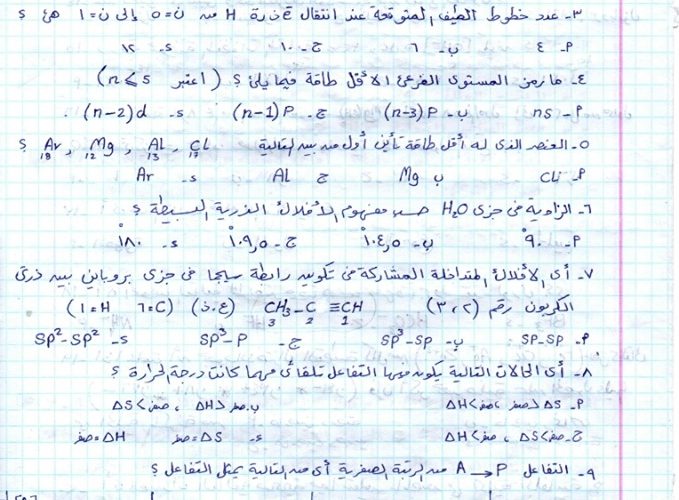 ٣- عدد خطوط الطيف المتوقعة عند انتقال e ذرة H من ن=٥ إلى ن=١ هي ؟
٤ -٢ ٦ -ب ١٠ -ج ١٢ -د
٤- ما رمز المستوى الفرعي الأقل طاقة فيما يلي ؟ (اعتبر n ⩽ 5)
٢- ns ب- (n-3)P ج- (n-1)P د- (n-2)d
٥- العنصر الذي له أقل طاقة تأين أول من بين التالية Cl, Al, Mg, Ar ؟
17 13 12 18
٢- Cl ب Mg ج Al د- Ar
٦- الزاوية في جزئ H₂O حسب مفهوم الأفلاك الذرية البسيطة ؟
٢- ٩٠° ب- ١٠٤,٥° ج- ١٠٩,٥° د- ١٨٠°
٧- أي الأفلاك المتداخلة المشاركة في تكوين رابطة سيجما في جزئ بروباين بين ذرتي
الكربون رقم (٢،٣) CH₃-C ≡CH (ع.ذ) (C=٦ H=١)
3 2 1
٢- SP-SP ب- SP³-SP ج- SP³-P د- SP²-SP²
٨- أي الحالات التالية يكون فيها التفاعل تلقائي مهما كانت درجة الحرارة ؟
٩- التفاعل A → P من الرتبة الصفرية أي من التالية يمثل التفاعل ؟